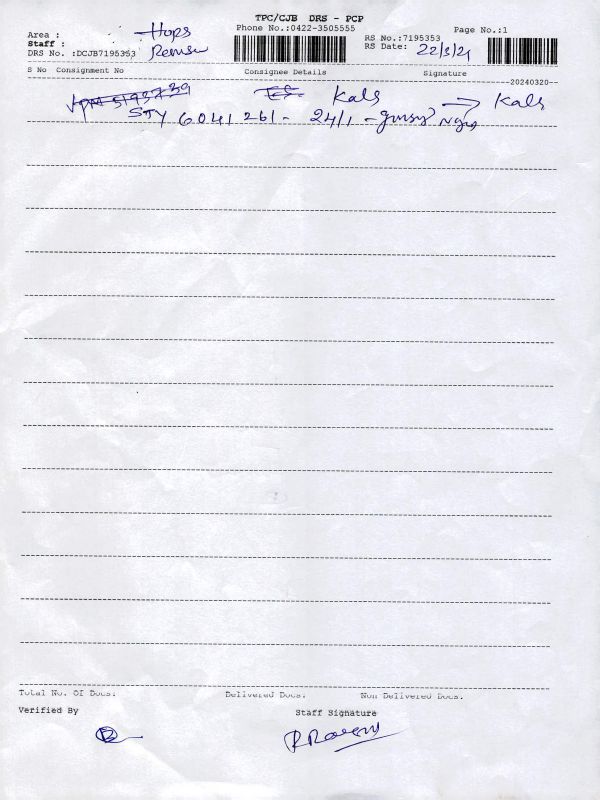 TPC/CJB DRS - PCP
Area : Hops
Phone No.:0422-3505555
Page No.:1
Staff :
RS No.:7195353
DRS No. :DCJB7195353
RS Date: 22/3/24
S No Consignment No Consignee Details Signature
--20240320--
Kals → Kals
STY 6041261 - 24/1 -
Total No. Of Docs: Delivered Docs: Non Delivered Docs:
Verified By Staff Signature